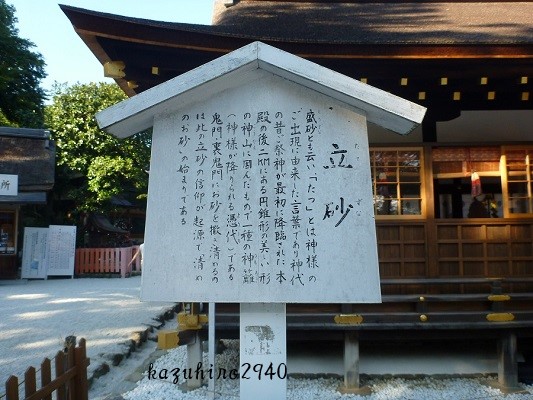 立砂
盛砂とも云い「たつ」とは神様の
ご出現に由来した言葉であり神代
の昔ご祭神が最初に降臨された本
殿の後二kmにある円錐形の美しい形
の神山に因んだもので一種の神籬
(神様が降りられる憑代)である
鬼門、裏鬼門にお砂を撒き清めるの
は此の立砂の信仰が起源で清め
のお砂の始まりである
所
kazuhiro2940